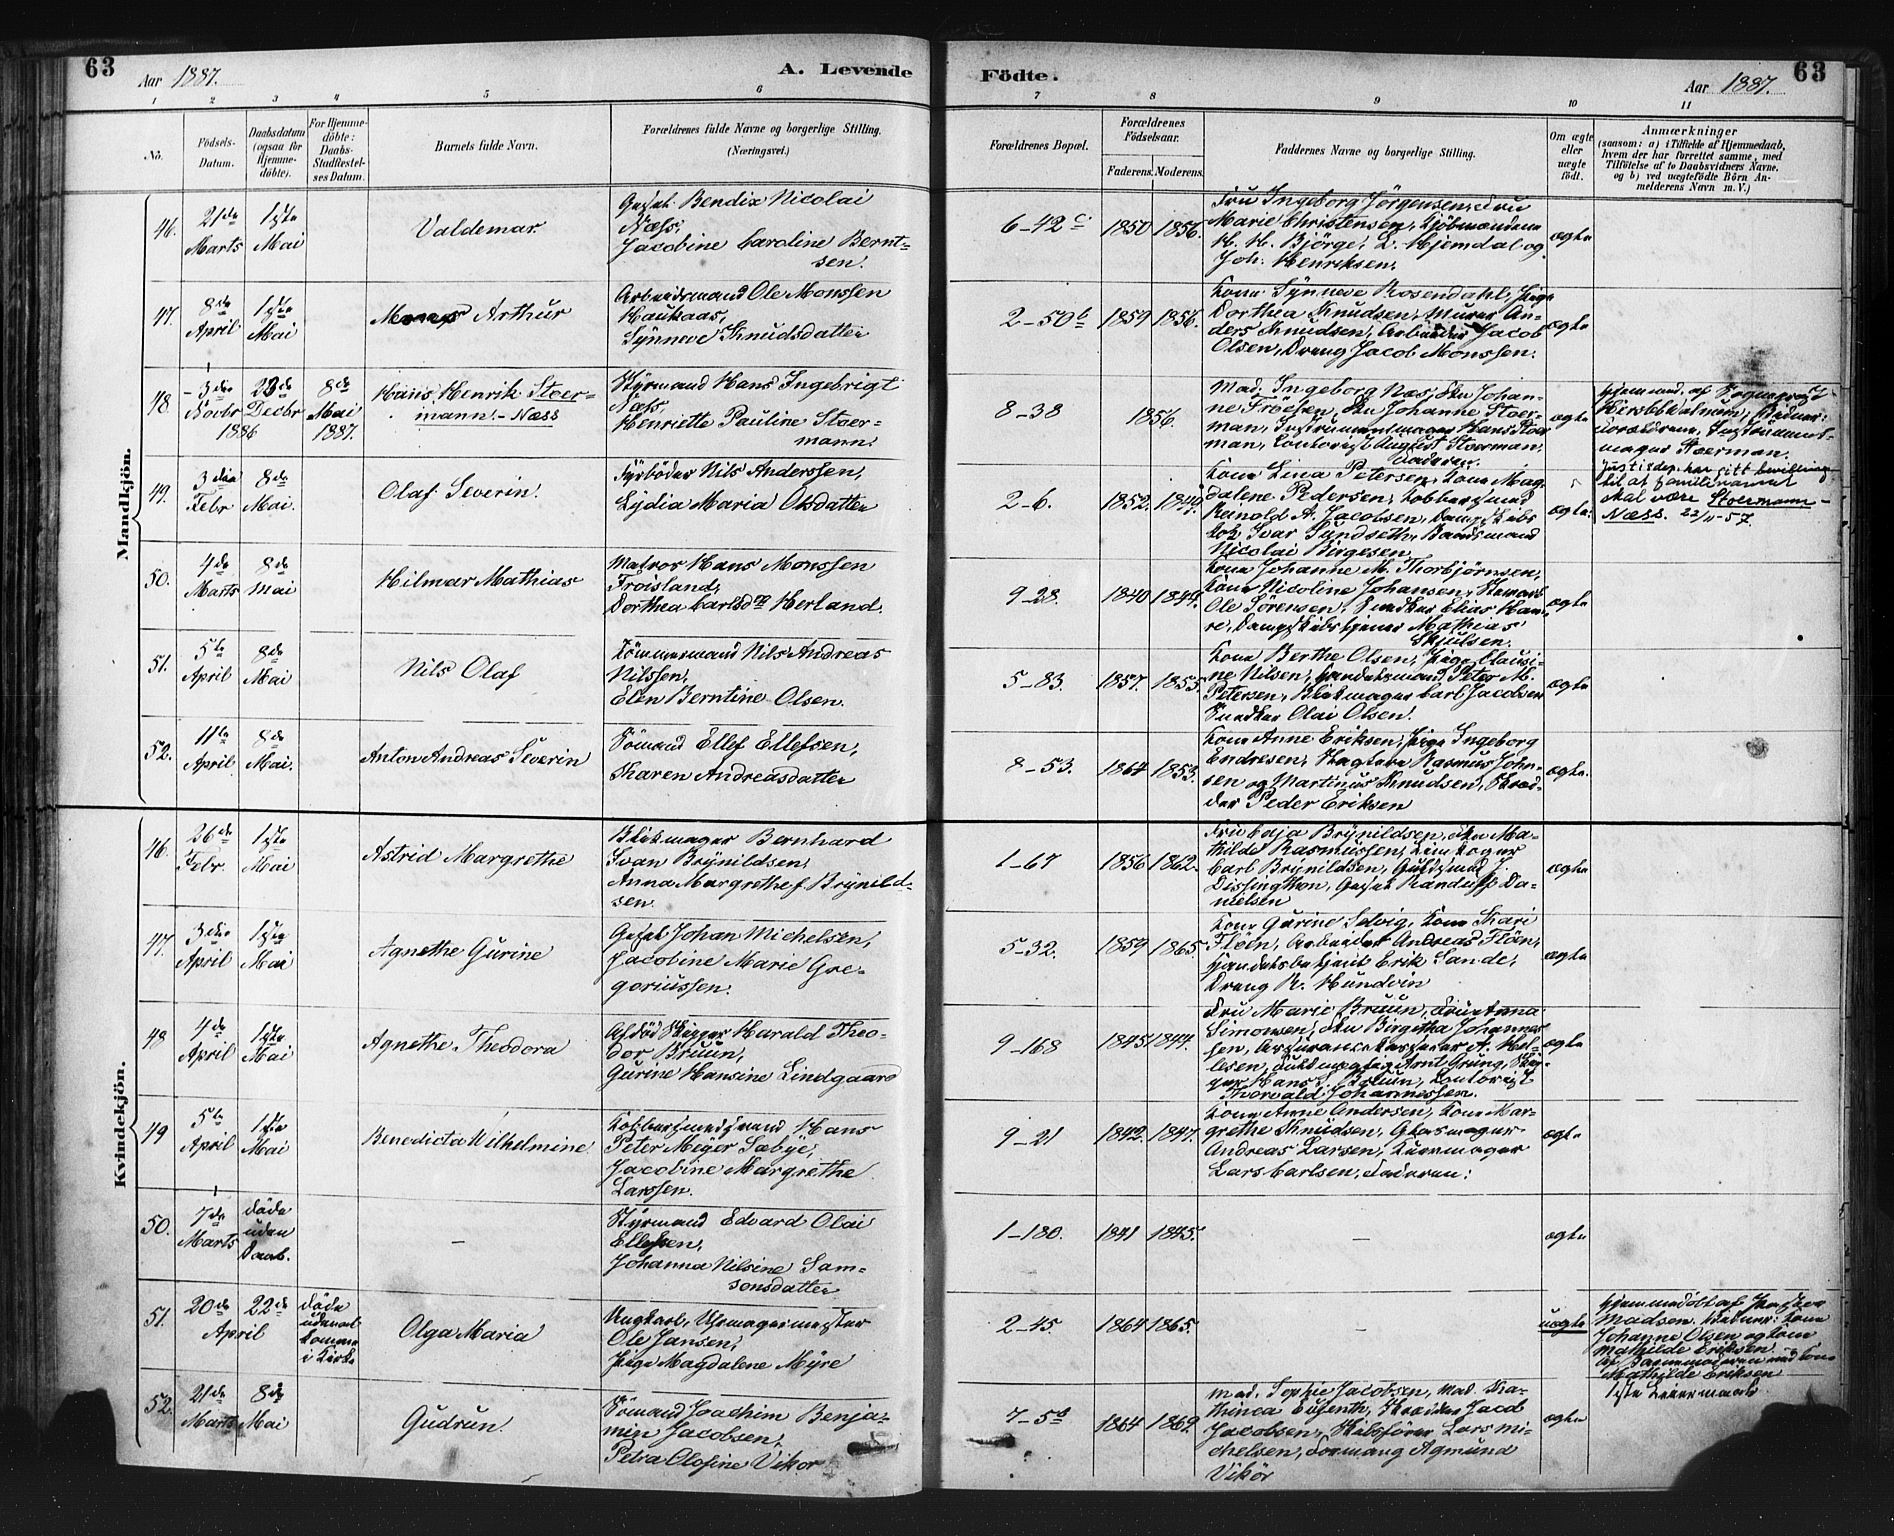 63
Aar 1887.
A. Levende
Födte.
Aar 1887.
63
1 2 3 4 5 6 7 8 9 10 11
No.
Födsels-
Datum.
Daabsdatum
(ogsaa for
Hjemme-
döbte).
For Hjemme-
döbte:
Daabs-
Stadfæstel-
ses Datum.
Barnets fulde Navn.
Forældrenes fulde Navne og borgerlige Stilling.
(Næringsvei.)
Forældrenes Bopæl.
Forældrenes
Födselsaar.
Faderens. Moderens.
Faddernes Navne og borgerlige Stilling.
Om ægte
eller
uægte
födt.
Anmærkninger
(saasom: a) i Tilfælde af Hjemmedaab,
hvem der har forrettet samme, med
Tilföielse af to Daabsvidners Navne,
og b) ved uægtefödte Börn An-
melderens Navn m. V.)
Mandkjön.
46.
21de
Marts
1ste
Mai
Valdemar
Bendix Nicolai
Næss,
Jacobine Caroline Bernt-
sen.
6-42c
1850 1856.
Fru Ingeborg Jørgensen, Fru
Marie Christensen, Kjöbmændene
H. H. Björge, L. Hjemdal og
Joh. Henriksen.
ægte
47.
8de
April
1ste
Mai
Arthur
Arbeidsmand Ole Monssen
Haukaas,
Synneve Knudsdatter
2-50b
1859 1856.
Kone Synneve Rosendahl, Pige
Dorthea Knudsen, Murer An-
ders Knudsen, Arbeider Jacob
Olsen, Dreng Jacob Monssen.
ægte
48.
3die
Novbr
1886
28de
Decbr
8de
Mai
1887.
Hans Henrik Stoer-
mann - Næss
Styrmand Hans Ingebrigt
Næss,
Henriette Pauline Stoer-
mann.
8-38
1856.
Mad. Ingeborg Næs, Frk Johan-
ne Fröesen, Frk Johanne Stoer-
man, Instrumentmager Hans Stoer-
man, Contorist August Stoerman,
Faderen.
ægte
Hjemmed. af Sogneprest
Instrument-
mager Stoerman.
Justisdep. har gitt bevilling
til at familienavnet
skal være Stoermann-
Næss. 22/11-57.
49.
3die
Febr
8de
Mai.
Olaf Severin.
Fyrböder Nils Anderssen,
Lydia Maria Olsdatter
2-6.
1852. 1849.
Kone Lina Petersen, Kone Mag-
dalene Pedersen, Kobbersmed
Reinold A. Jacobsen, Dampskibs
kok Ivar Sundseth, Baadsmand
Nicolai Birgesen
ægte.
50.
4de
Marts
8de
Mai
Hilmar Mathias
Matros Hans Monssen
Froisland,
Dorthea Carlsd. Herland.
9-28.
1840 1844.
Kone Johanne M. Thorbjörnsen,
Kone Nicoline Johansen,
Ole Sörensen, Snedker Elias Han-
Mathias
Skjulsen.
ægte
51.
5te
April
8de
Mai
Nils Olaf
Tömmermand Nils Andreas
Nilssen,
Elen Berntine Olsen.
5-83.
1857. 1855.
Kone Berthe Olsen, Pige Clausi-
ne Nilsen, Handelsmand Peter M.
Petersen, Blikmager Carl Jacobsen
Snedker Olai Olsen.
ægte
52.
11te
April
8de
Mai.
Anton Andreas Severin
Sömand Ellef Ellefsen,
Karen Andreasdatter
8-53.
1864 1853.
Kone Anne Eriksen, Pige Ingeborg
Endresen, Rasmus John-
sen og Martinus Knudsen, Skræd-
der Peder Eriksen
ægte.
Kvindekjön.
46.
26de
Febr.
1ste
Mai
Astrid Margrethe
Blikmager Bernhard
Ivan Brynildsen,
Anna Margrethe f. Brynild-
sen.
1-67
1856 1862.
Fru Caja Brynildsen, Frk Ma-
thilde Rasmussen,
Carl Brynildsen, Guldsmed J.
Dissingthon, Randulff Da-
nielsen
ægte
47.
3die
April
1ste
Mai
Agnethe Gurine
Johan Michelsen,
Jacobine Marie Gre-
goriussen.
5-32.
1859 1865.
Kone Gurine Selvig, Kone Kari
Flöen, Arbeider Andreas Flöen,
Handelsbetjent Erik Sande,
Dreng R. Hundvin
ægte
48
4de
April
1ste
Mai
Agnethe Theodora
Afdöd Skipper Harald Theo-
dor Bruun,
Gurine Hansine Lindgaard
9-168
1845. 1844.
Fru Marie Bruun, Fru Anna
Simonsen, Frk Birgetha Johannes-
sen, Arnt Grung, Skip-
per Hans L. Bruun, Contorist
Thorvald Johannessen.
ægte
49
5te
April
1ste
Mai
Benedicta Wilhelmine
Kobbersmedsvend Hans
Peter Meyer Sæbye,
Jacobine Margrethe
Larssen.
9-21
1842. 1847.
Kone Anne Andersen, Kone Mar-
grethe Knudsen,
Andreas Larsen,
Lars Carlsen, Faderen.
ægte
50.
7de
Marts
Döde
uden
Daab.
-
Styrmand Edvard Olai
Ellefsen,
Johanna Nilsine Sam-
sonsdatter
1-180.
1841 1845.
-
ægte
51.
20de
22de
April
Döde
uden at
komme
i Kirke
Olga Maria
Ungkarl, Uhrmagermester
Ole Jansen,
Pige Magdalene Myre
2-45.
1864 1865.
-
uægte
Hjemmedöbt af Presten
Madsen. Vidner: Kone
Johanne Olsen og Kone
Mathilde Eriksen.
Mathilde Eriksen
1ste Leiermaal.
52.
21de
Marts
8de
Mai
Gudrun.
Sömand Joachim Benja-
min Jacobsen,
Petra Olofine Vikør
7-5b
1864 1869.
Mad. Sophie Jacobsen, Mad. Ka-
thinca Eugenth, Skrædder Jacob
Jacobsen, Skibsförer Lars Mi-
chelsen, Formand Agmund
Vikör
ægte